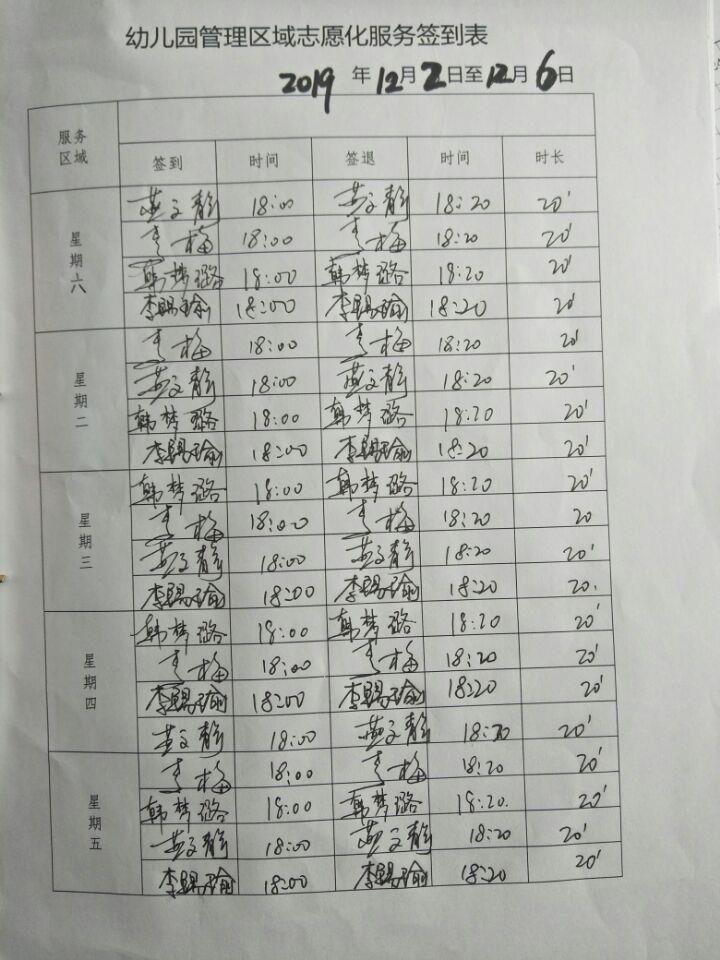 幼儿园管理区域志愿化服务签到表
2019 年 12月 2日至 12月 6日
服务区域
签到 时间 签退 时间 时长
星期六
燕文静 18:00 燕文静 18:20 20'
李梅 18:00 李梅 18:20 20'
韩梦璐 18:00 韩梦璐 18:20 20'
李赐瑜 18:00 李赐瑜 18:20 20'
星期二
李梅 18:00 李梅 18:20 20'
燕文静 18:00 燕文静 18:20 20'
韩梦璐 18:00 韩梦璐 18:20 20'
李赐瑜 18:00 李赐瑜 18:20 20'
星期三
韩梦璐 18:00 韩梦璐 18:20 20'
李梅 18:00 李梅 18:20 20
燕文静 18:00 燕文静 18:20 20'
李赐瑜 18:00 李赐瑜 18:20 20.
星期四
韩梦璐 18:00 韩梦璐 18:20 20'
李梅 18:00 李梅 18:20 20'
李赐瑜 18:00 李赐瑜 18:20 20'
燕文静 18:00 燕文静 18:20 20'
星期五
李梅 18:00 李梅 18:20 20'
韩梦璐 18:00 韩梦璐 18:20. 20'
燕文静 18:00 燕文静 18:20 20'
李赐瑜 18:00 李赐瑜 18:20 20'